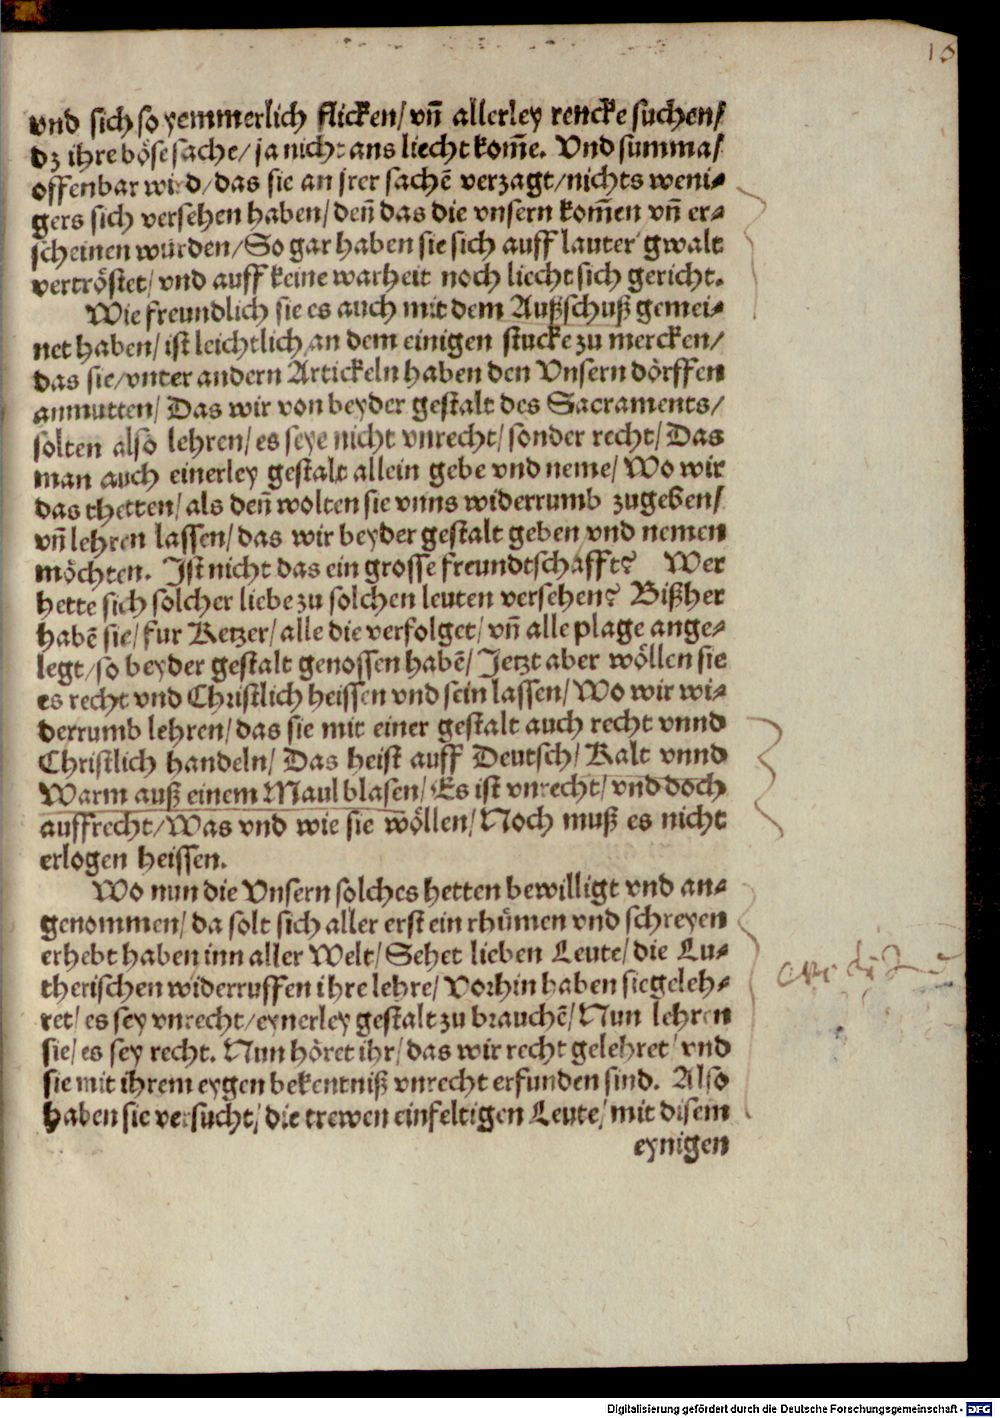 10
vnd sich so yemmerlich flicken/ vñ allerley rencke suchen/
dz ihre böse sache/ ja nicht ans liecht kom̃e. Vnd summa/
offenbar wird/ das sie an jrer sachẽ verzagt/ nichts weni⸗
gers sich versehen haben/ deñ das die vnsern kom̃en vñ er⸗
scheinen wurden/ So gar haben sie sich auff lauter gwalt
vertröstet/ vnd auff keine warheit noch liecht sich gericht.
Wie freundlich sie es auch mit dem Außschuß gemei⸗
net haben/ ist leichtlich an dem einigen stucke zu mercken/
das sie/ vnter andern Artickeln haben den Vnsern dörffen
anmutten/ Das wir von beyder gestalt des Sacraments/
solten also lehren/ es seye nicht vnrecht/ sonder recht/ Das
man auch einerley gestalt allein gebe vnd neme/ Wo wir
das thetten/ als deñ wolten sie vnns widerrumb zugeben/
vñ lehren lassen/ das wir beyder gestalt geben vnd nemen
möchten. Ist nicht das ein grosse freundtschafft? Wer
hette sich solcher liebe zu solchen leuten versehen? Bißher
habẽ sie/ fur Ketzer/ alle die verfolget/ vñ alle plage ange⸗
legt/ so beyder gestalt genossen habẽ/ Jetzt aber wöllen sie
es recht vnd Christlich heissen vnd sein lassen/ Wo wir wi⸗
derrumb lehren/ das sie mit einer gestalt auch recht vnnd
Christlich handeln/ Das heist auff Deutsch/ Kalt vnnd
Warm auß einem Maul blasen/ Es ist vnrecht/ vnd doch
auffrecht/ Was vnd wie sie wöllen/ Noch muß es nicht
erlogen heissen.
Wo nun die Vnsern solches hetten bewilligt vnd an⸗
genommen/ da solt sich aller erst ein rhümen vnd schreyen
erhebt haben inn aller Welt/ Sehet lieben Leute/ die Lu⸗
therischen widerruffen ihre lehre/ Vorhin haben sie geleh⸗
ret/ es sey vnrecht/ eynerley gestalt zu brauchẽ/ Nun lehren
sie/ es sey recht. Nun höret ihr/ das wir recht gelehret/ vnd
sie mit ihrem eygen bekentniß vnrecht erfunden sind. Also
haben sie versucht/ die trewen einfeltigen Leute/ mit disem
eynigen
Digitalisierung gefördert durch die Deutsche Forschungsgemeinschaft - DFG